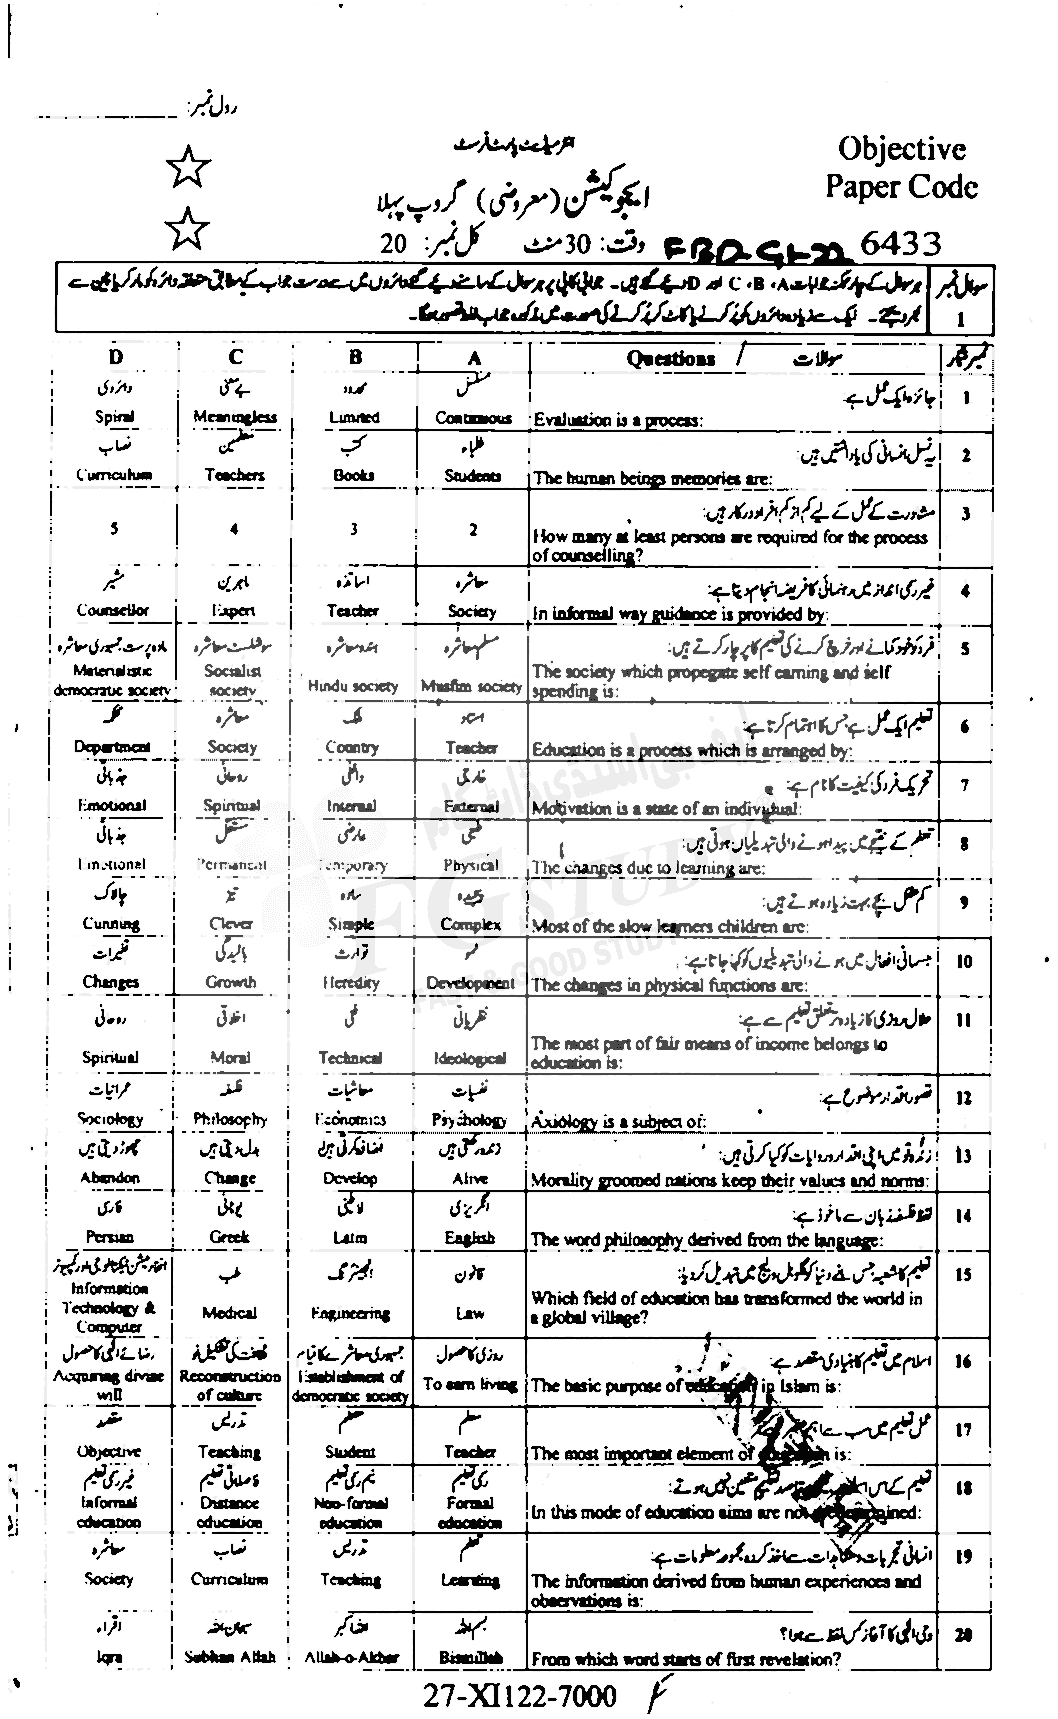 رول نمبر:
انٹرمیڈیٹ پارٹ فرسٹ
Objective
Paper Code
ایجوکیشن (معروضی) گروپ پہلا
وقت: 30 منٹ کل نمبر: 20
FBD-G1-22 6433
سوال نمبر 1
D C B A Questions / سوالات نمبر شمار
دائروی بے معنی محدود مسلسل جائزہ ایک عمل ہے: 1
Spiral Meaningless Limited Continuous Evaluation is a process:
نصاب معلمین کتب طلباء یہ نسل انسانی کی یادداشتیں ہیں: 2
Curriculum Teachers Books Students The human beings memories are:
مشاورت کے عمل کے لیے کم از کم افراد درکار ہیں: 3
5 4 3 2 How many at least persons are required for the process
of counselling?
مشیر ماہرین اساتذہ معاشرہ غیر رسمی انداز میں رہنمائی کا فریضہ انجام دیتا ہے: 4
Counsellor Expert Teacher Society In informal way guidance is provided by:
مادہ پرست جمہوری معاشرہ سوشلسٹ معاشرہ ہندو معاشرہ مسلم معاشرہ فرد کو خود کمانے اور خرچ کرنے کی تعلیم کا پرچار کرتے ہیں: 5
Materialistic democratic society Socialist society Hindu society Muslim society The society which propegate self earning and self
spending is:
محکمہ معاشرہ ملک استاد تعلیم ایک عمل ہے جس کا اہتمام کرتا ہے: 6
Department Society Country Teacher Education is a process which is arranged by:
جذباتی روحانی داخلی خارجی تحریک فرد کی کیفیت کا نام ہے: 7
Emotional Spiritual Internal External Motivation is a state of an individual:
جذباتی مستقل عارضی طبعی تعلم کے نتیجے میں پیدا ہونے والی تبدیلیاں ہوتی ہیں: 8
Emotional Permanent Temporary Physical The changes due to learning are:
چالاک تیز سادہ پیچیدہ کم عقل بچے بہت زیادہ ہوتے ہیں: 9
Cunning Clever Simple Complex Most of the slow learners children are:
تغیرات بالیدگی توارث نمو جسمانی افعال میں ہونے والی تبدیلیوں کو کہا جاتا ہے: 10
Changes Growth Heredity Development The changes in physical functions are:
روحانی اخلاقی فنی نظریاتی حلال روزی کا زیادہ تر تعلق تعلیم سے ہے: 11
Spiritual Moral Technical Ideological The most part of fair means of income belongs to
education is:
عمرانیات فلسفہ معاشیات نفسیات تصور اقدار موضوع ہے: 12
Sociology Philosophy Economics Psychology Axiology is a subject of:
چھوڑ دیتی ہیں بدل دیتی ہیں اضافہ کرتی ہیں زندہ رکھتی ہیں زندہ قومیں اپنی اقدار و روایات کو کیا کرتی ہیں: 13
Abandon Change Develop Alive Morality groomed nations keep their values and norms:
فارسی یونانی لاطینی انگریزی لفظ فلسفہ زبان سے ماخوذ ہے: 14
Persian Greek Latin English The word philosophy derived from the language:
انفارمیشن ٹیکنالوجی اور کمپیوٹر طب انجینئرنگ قانون تعلیم کا شعبہ جس نے دنیا کو گلوبل ولیج میں تبدیل کر دیا: 15
Information Technology & Computer Medical Engineering Law Which field of education has transformed the world in
a global village?
رضائے الٰہی کا حصول ثقافت کی تشکیل نو جمہوری معاشرے کا قیام روزی کا حصول اسلام میں تعلیم کا بنیادی مقصد ہے: 16
Acquiring divine will Reconstruction of culture Establishment of democratic society To earn living The basic purpose of education in Islam is:
مقصد تدریس متعلم معلم عمل تعلیم میں سب سے 17
Objective Teaching Student Teacher The most important element of education is:
غیر رسمی تعلیم فاصلاتی تعلیم نیم رسمی تعلیم رسمی تعلیم تعلیم کے اس متعین نہیں ہوتے: 18
Informal education Distance education Non-formal education Formal education In this mode of education aims are not
معاشرہ نصاب تدریس تعلم انسانی تجربات و مشاہدات سے اخذ کردہ مجموعہ معلومات ہے: 19
Society Curriculum Teaching Learning The information derived from human experiences and
observations is:
اقراء سبحان اللہ اللہ اکبر بسم اللہ وحی الٰہی کا آغاز کس لفظ سے ہوا؟ 20
Iqra Subhan Allah Allah-o-Akbar Bismillah From which word starts of first revelation?
27-XI122-7000